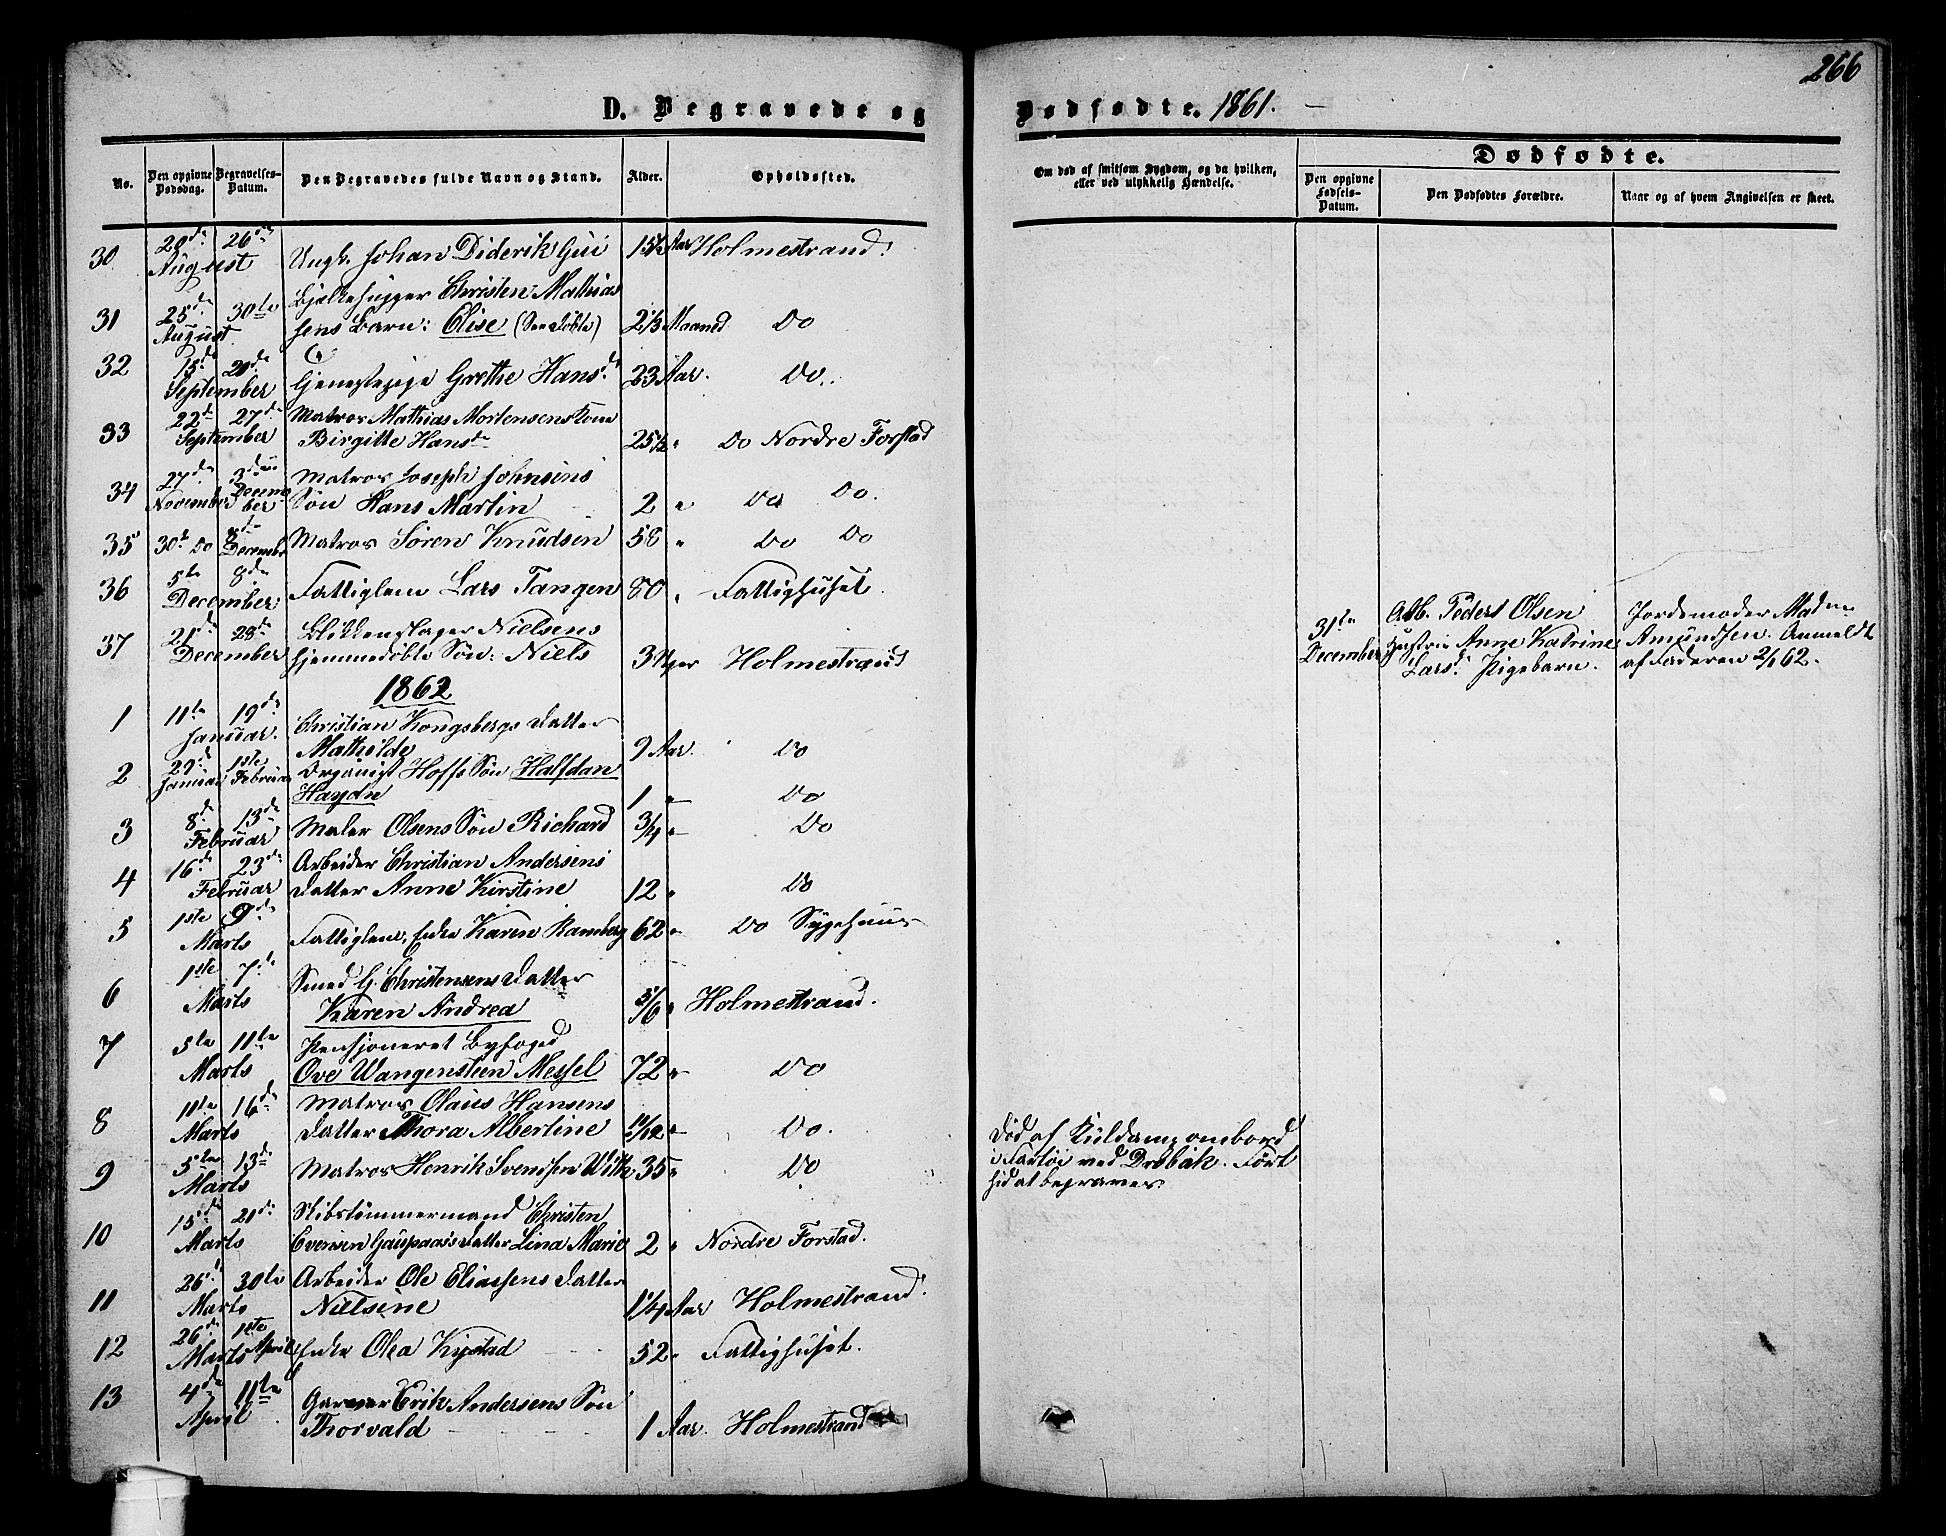 266
D. Begravede og Dødfødte. 1861.
No.
Den opgivne Dødsdag.
Begravelses-Datum.
Den Begravedes fulde Navn og Stand.
Alder.
Opholdssted.
Om død af smitsom Sygdom, og da hvilken,
eller ved ulykkelig Hændelse.
Dødfødte.
Den opgivne Fødsels-Datum.
Den Dødfødtes Forældre.
Naar og af hvem Angivelsen er skeet.
30 20de 26de August Ungk. Johan Diderik Gui 15½ Aar Holmestrand
31 25de August 30te Bjelkehugger Christen Mathias
sens Barn: Elise (Sendøbte) 2½ Maaned Do
32 15de 20de September Tjenestepige Grethe Hansd. 23 Aar. Do.
33 22de 27de September Matros Mathias Mortensens Kone
Birgitte Hansdr 25½ " Do Nordre Forstad
34 27de November 3die December Matros Joseph Johnsens
Søn Hans Martin 2 " Do Do.
35 30te Do 8de December Matros Søren Knudsen 58 " Do Do
36 5te 8de December Fattiglem Lars Tangen 80 " Fattighuset.
37 21de 28de December Blikkenslager Nielsens
hjemmedøbte Søn: Niels 3 Uger Holmestrand
31te December Arb. Peder Olsen
Hustru Anne Katrine
Larsd. Pigebarn.
Jordemoder Madm
Amundsen. Anmeldt
af Faderen 2/1 62.
1862
1 11te 19de Januar. Christian Kongsbergs Datter
Mathilde 9 Aar. Do
2 29de Januar 1ste Februar Organist Hoffs Søn Halfdan
Haydn 1 " Do
3 8de 13de Februar Maler Olsens Søn Richard 3/4 " Do
4 16de 23de Februar Arbeider Christian Andersens
Datter Anne Kirstine 12 " Do
5 1ste 9de Marts Fattiglem, Enke Karen Ramberg 62 " Do Sygehuus
6 1ste 7de Marts Smed G. Christensens Datter
Karen Andrea 5/6 " Holmestrand.
7 5te 11te Marts Pensjoneret Byfoged
Ove Wangensteen Messel 72 " Do
8 11te 16de Marts Matros Olaus Hansens
Datter Thora Albertine 11/12 " Do.
9 5te 13de Marts Matros Henrik Svendsen Wik 35 " Do
Død af Kuldamp ombord
i Fartøi ved Drøbak. Ført
hid at begraves.
10 15de 21de Marts Skibstømmermand Christen
Evensen Gaupaas's Datter Lina Marie 2 " Nordre Forstad.
11 26de 30te Marts Arbeider Ole Eliassens Datter
Nielsine 1¼ Aar Holmestrand.
12 26de Marts 1ste April Enke Olea Kystad 52 " Fattighuset.
13 4de 11te April Garver Erik Andersens Søn
Thorvald 1 Aar. Holmestrand